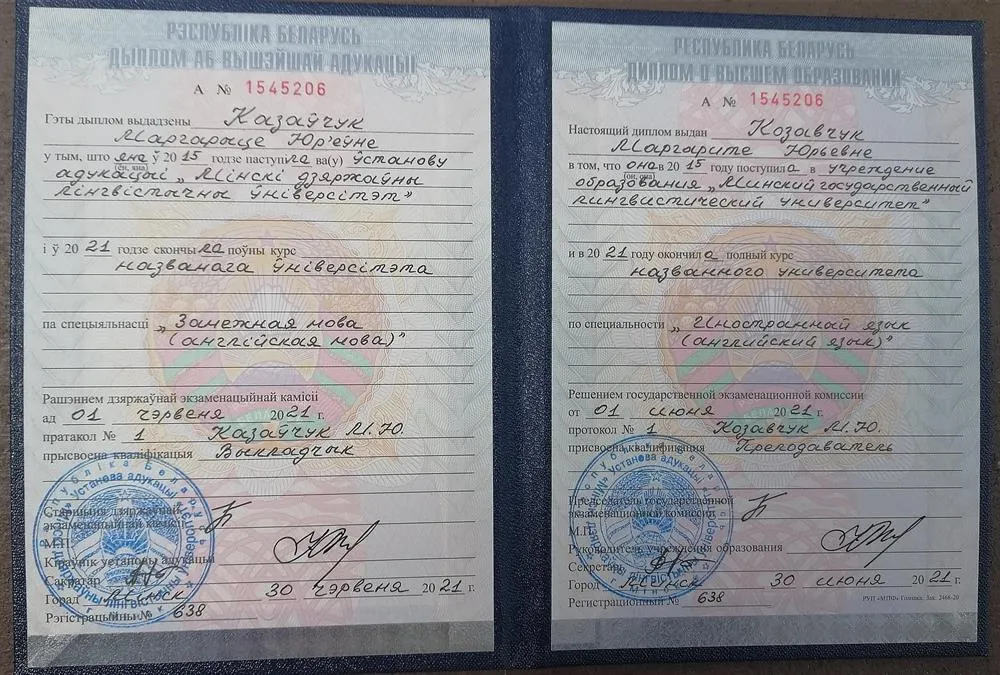 РЭСПУБЛІКА БЕЛАРУСЬ
ДЫПЛОМ АБ ВЫШЭЙШАЙ АДУКАЦЫІ
А № 1545206
Гэты дыплом выдадзены Казаўчук
Маргарыце Юр'еўне
у тым, што яна ў 2015 годзе паступіла ва(у) ўстанову
(ён, яна)
адукацыі „Мінскі дзяржаўны
лінгвістычны ўніверсітэт"
і ў 2021 годзе скончыла поўны курс
названага ўніверсітэта
па спецыяльнасці „Замежная мова
(англійская мова)"
Рашэннем дзяржаўнай экзаменацыйнай камісіі
ад 01 чэрвеня 2021 г.
пратакол № 1 Казаўчук М.Ю.
прысвоена кваліфікацыя Выкладчык
Старшыня дзяржаўнай
экзаменацыйнай камісіі
М.П.
Кіраўнік установы адукацыі
Сакратар
Горад Мінск 30 чэрвеня 2021 г.
Рэгістрацыйны № 638
РЕСПУБЛИКА БЕЛАРУСЬ
ДИПЛОМ О ВЫСШЕМ ОБРАЗОВАНИИ
А № 1545206
Настоящий диплом выдан Козавчук
Маргарите Юрьевне
в том, что она в 2015 году поступила в учреждение
(он, она)
образования „Минский государственный
лингвистический университет"
и в 2021 году окончила полный курс
названного университета
по специальности „Иностранный язык
(английский язык)"
Решением государственной экзаменационной комиссии
от 01 июня 2021 г.
протокол № 1 Козавчук М.Ю.
присвоена квалификация Преподаватель
Председатель государственной
экзаменационной комиссии
М.П.
Руководитель учреждения образования
Секретарь
Город Минск 30 июня 2021 г.
Регистрационный № 638
РУП «МПФ» Гознака. Зак. 2468-20